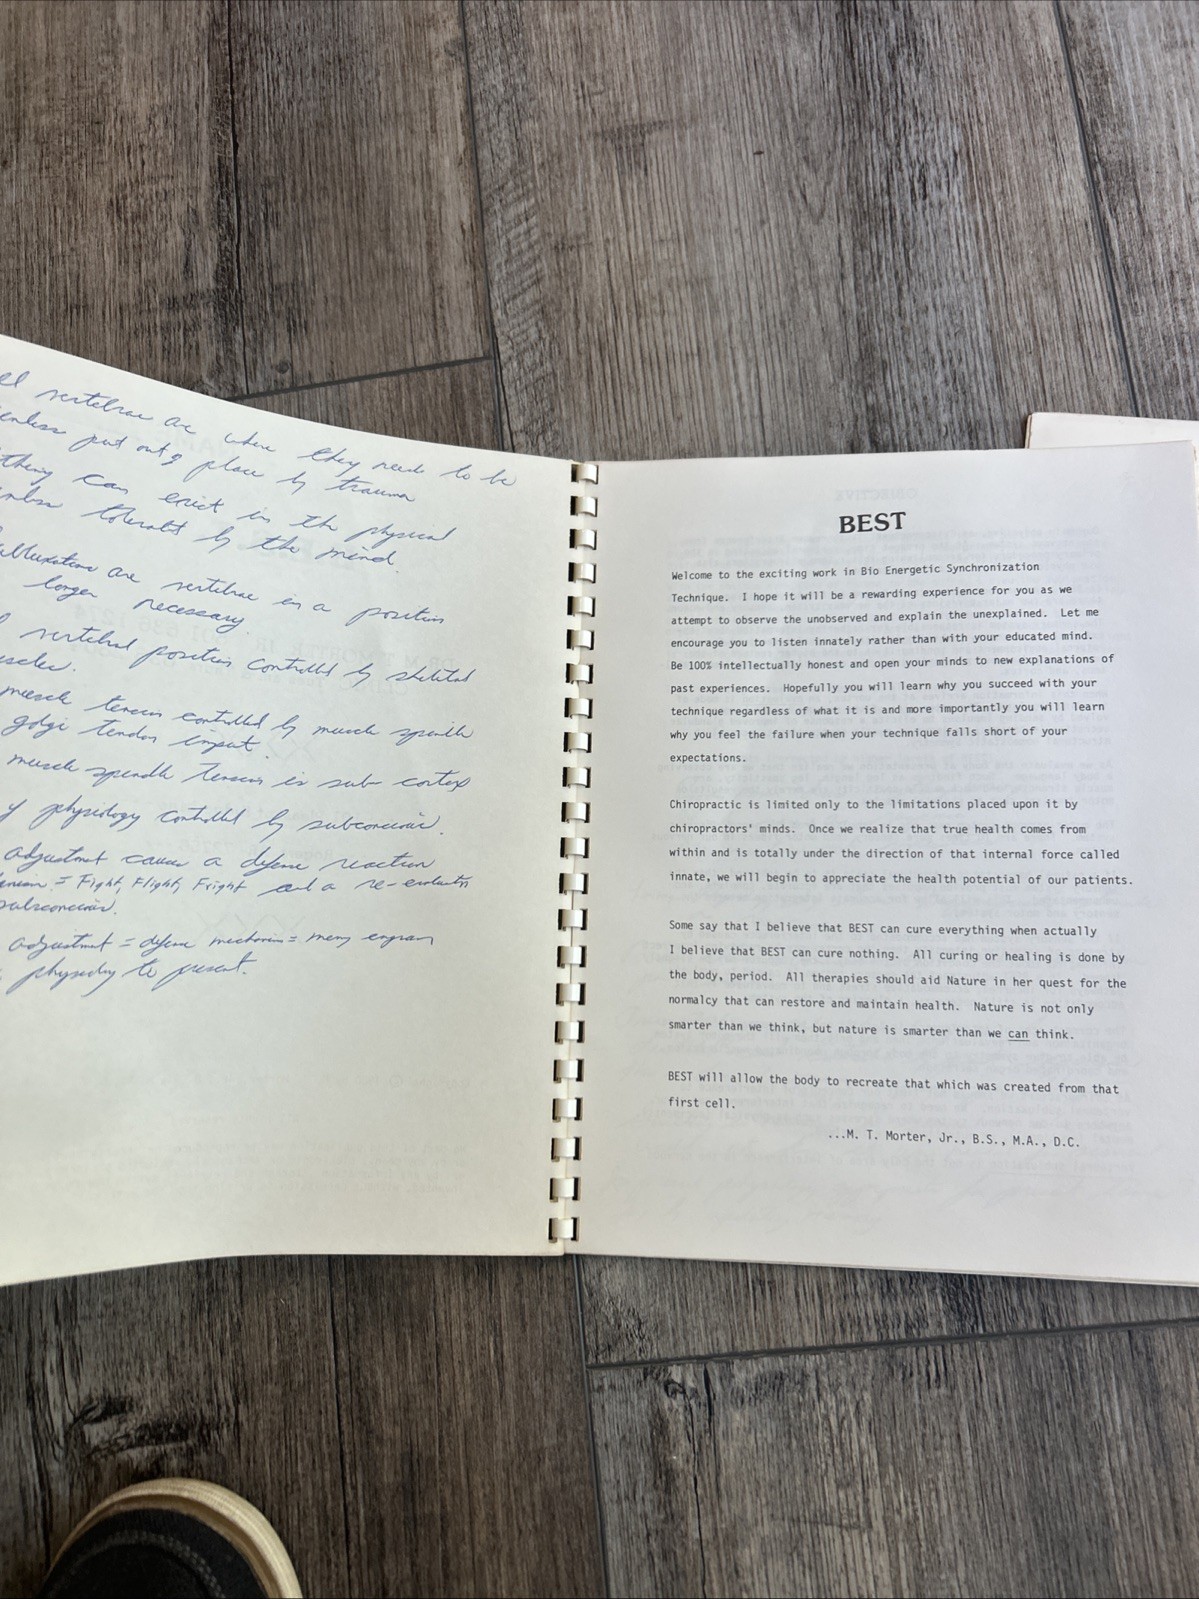 vertebrae are where they need to be
unless put out of place by trauma
thing can exist in the physical
unless tolerated by the mind.
are vertebrae in a position
longer necessary.
vertebral position controlled by skeletal
muscle tension controlled by muscle spindle
golgi tendon input.
muscle spindle tension is sub-cortex
physiology controlled by subconscious.
adjustment causes a defense reaction
= Fight, Flight, Fright and a re-evaluation
subconscious.
adjustment = defense mechanism = memory engram
physiology to present.
BEST
Welcome to the exciting work in Bio Energetic Synchronization
Technique. I hope it will be a rewarding experience for you as we
attempt to observe the unobserved and explain the unexplained. Let me
encourage you to listen innately rather than with your educated mind.
Be 100% intellectually honest and open your minds to new explanations of
past experiences. Hopefully you will learn why you succeed with your
technique regardless of what it is and more importantly you will learn
why you feel the failure when your technique falls short of your
expectations.
Chiropractic is limited only to the limitations placed upon it by
chiropractors' minds. Once we realize that true health comes from
within and is totally under the direction of that internal force called
innate, we will begin to appreciate the health potential of our patients.
Some say that I believe that BEST can cure everything when actually
I believe that BEST can cure nothing. All curing or healing is done by
the body, period. All therapies should aid Nature in her quest for the
normalcy that can restore and maintain health. Nature is not only
smarter than we think, but nature is smarter than we can think.
BEST will allow the body to recreate that which was created from that
first cell.
...M. T. Morter, Jr., B.S., M.A., D.C.